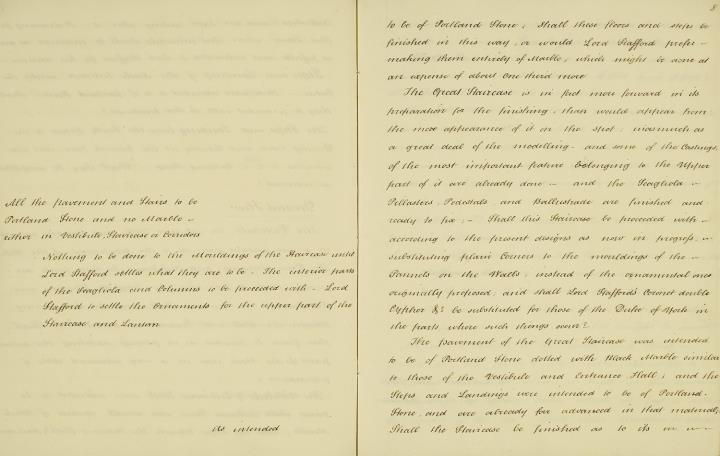 All the pavement and Stairs to be
Portland Stone and no Marble –
either in Vestibule, Staircase or Corridors
Nothing to be done to the Mouldings of the Staircase until
Lord Stafford settles what they are to be – The interior parts
of the Scagliola and Columns to be proceeded with – Lord
Stafford to settle the Ornaments for the upper part of the
Staircase and Lantern
As intended
8
to be of Portland Stone; Shall these floors and steps be
finished in this way, or would Lord Stafford prefer –
making them entirely of Marble, which might be done at
an expense of about One third more
The Great Staircase is in fact more forward in its
preparation for the finishing, than would appear from
the mere appearance of it on the spot, inasmuch as
a great deal of the modelling – and some of the Castings,
of the most important feature belonging to the Upper
part of it are already done – and the Scagliola –
Pellasters, Pedestals and Ballustrade are finished and
ready to fix; – Shall this Staircase be proceeded with –
according to the present designs as now in progress, –
substituting plain Corners to the mouldings of the –
Pannels on the Walls, instead of the ornamental ones
originally proposed; and shall Lord Stafford's Coronet double
Cypher &c be substituted for those of the Duke of York in
the parts where such things occur?
The Pavement of the Great Staircase was intended
to be of Portland Stone dotted with Black Marble similar
to those of the Vestibule and Entrance Hall; and the
Steps and Landings were intended to be of Portland –
Stone, and are already far advanced in that material;
Shall the Staircase be finished as to its